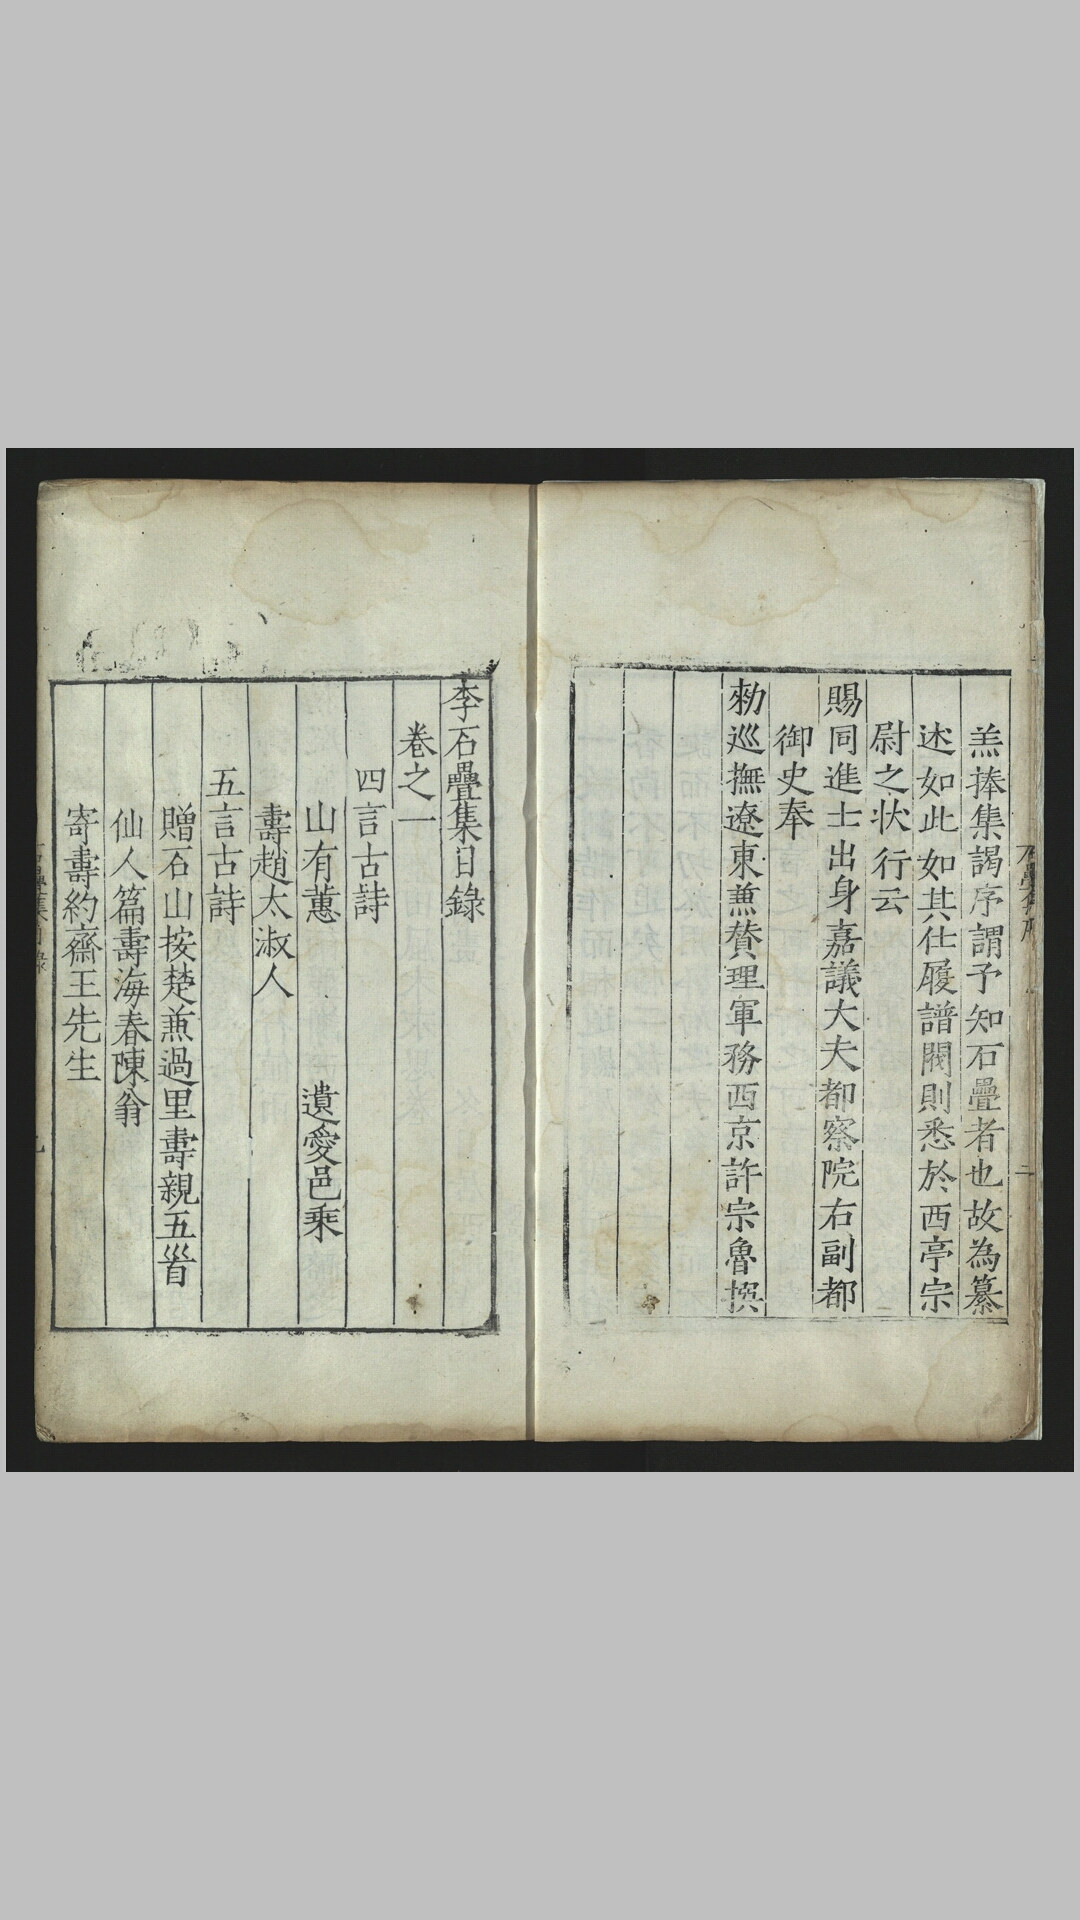 羔捧集謁序謂予知石疊者也故為纂
述如此如其仕履譜閥則悉於西亭宗
尉之狀行云
賜同進士出身嘉議大夫都察院右副都
御史奉
勑巡撫遼東兼贊理軍務西京許宗魯撰
李石疊集目錄
卷之一
四言古詩
山有蕙 遺愛邑乘
壽趙太淑人
五言古詩
贈石山按楚兼過里壽親五首
仙人篇壽海春陳翁
寄壽約齋王先生